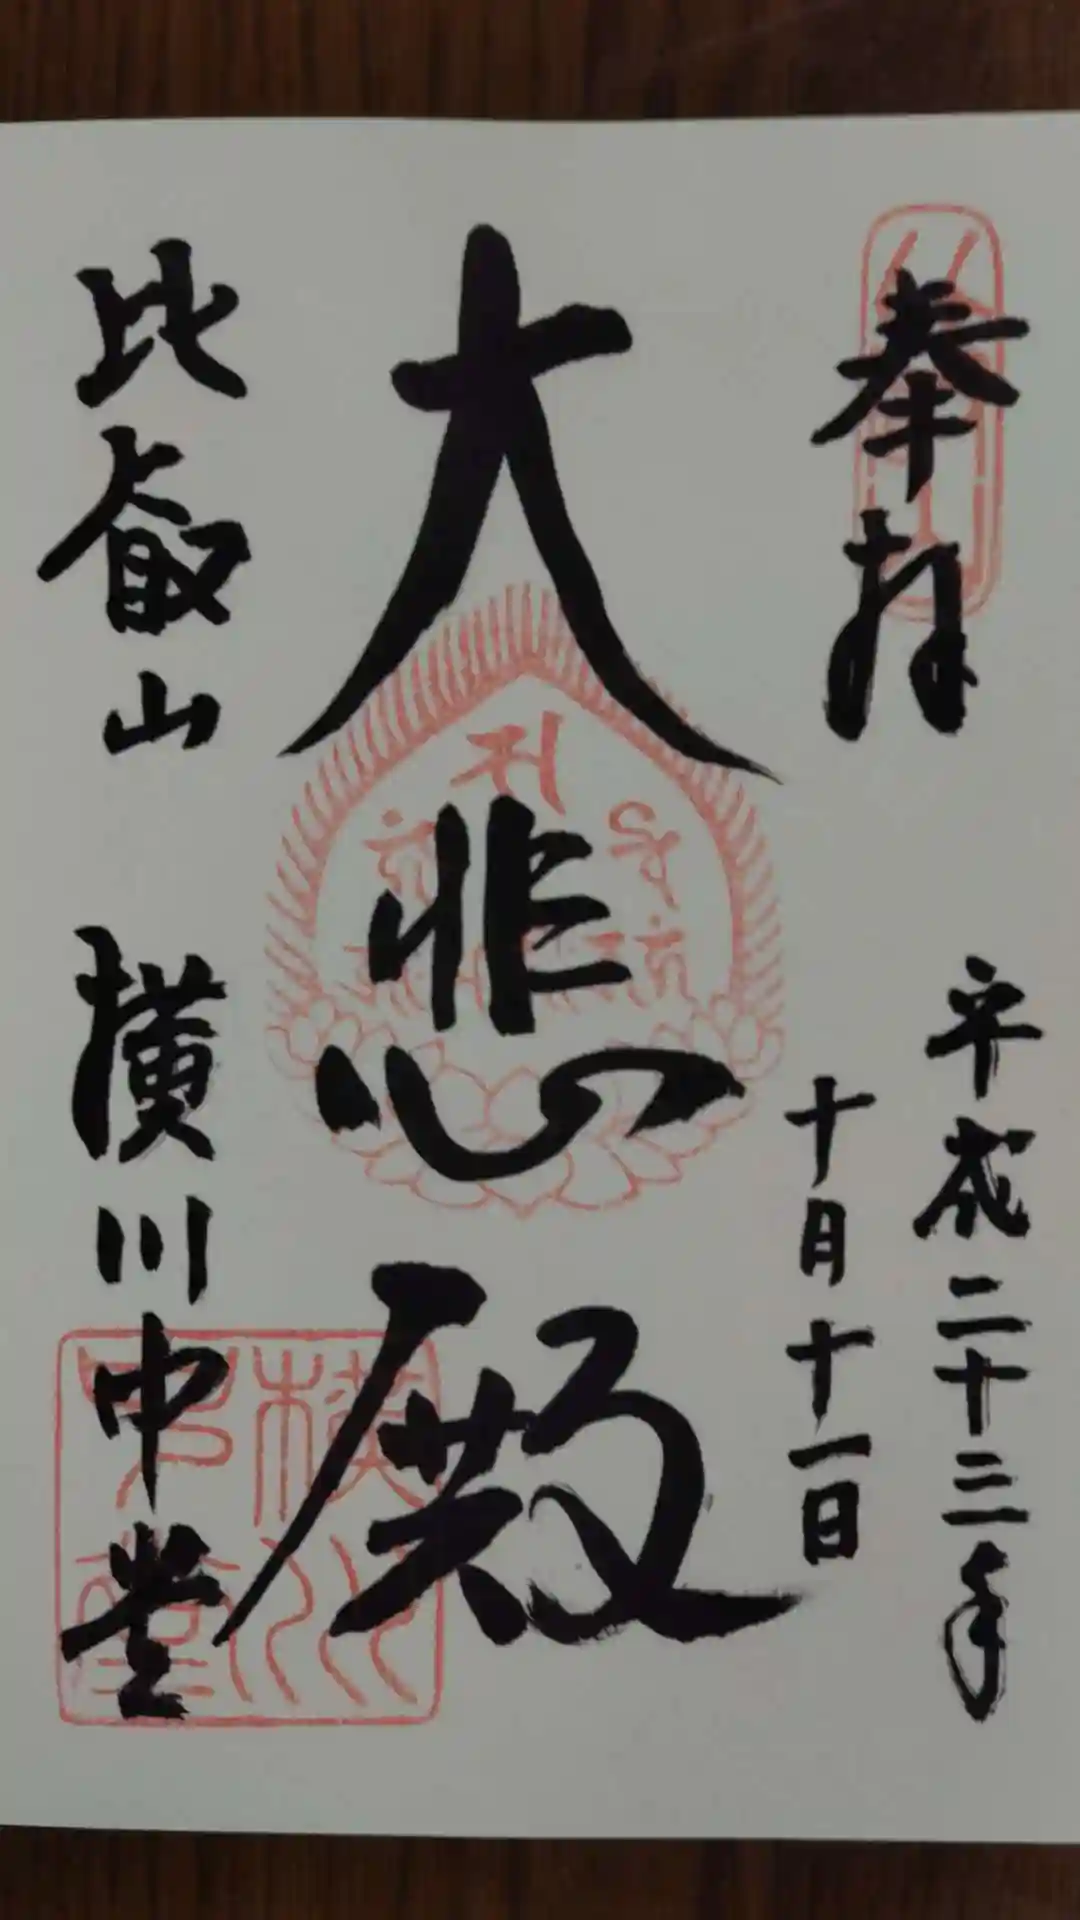 奉拝
平成二十三年
十月十一日
大悲殿
比叡山 横川中堂
横川中堂